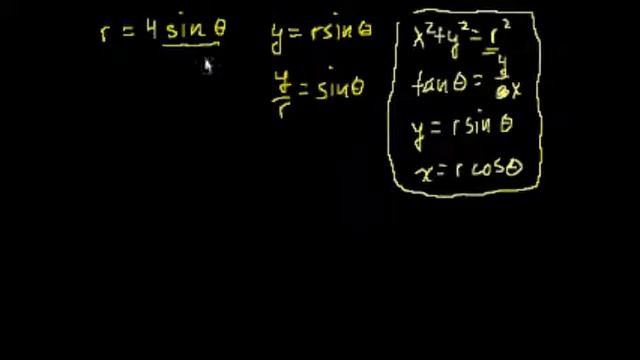 r = 4 sin θ
y = r sin θ
y/r = sin θ
x² + y² = r²
tan θ = y/x
y = r sin θ
x = r cos θ